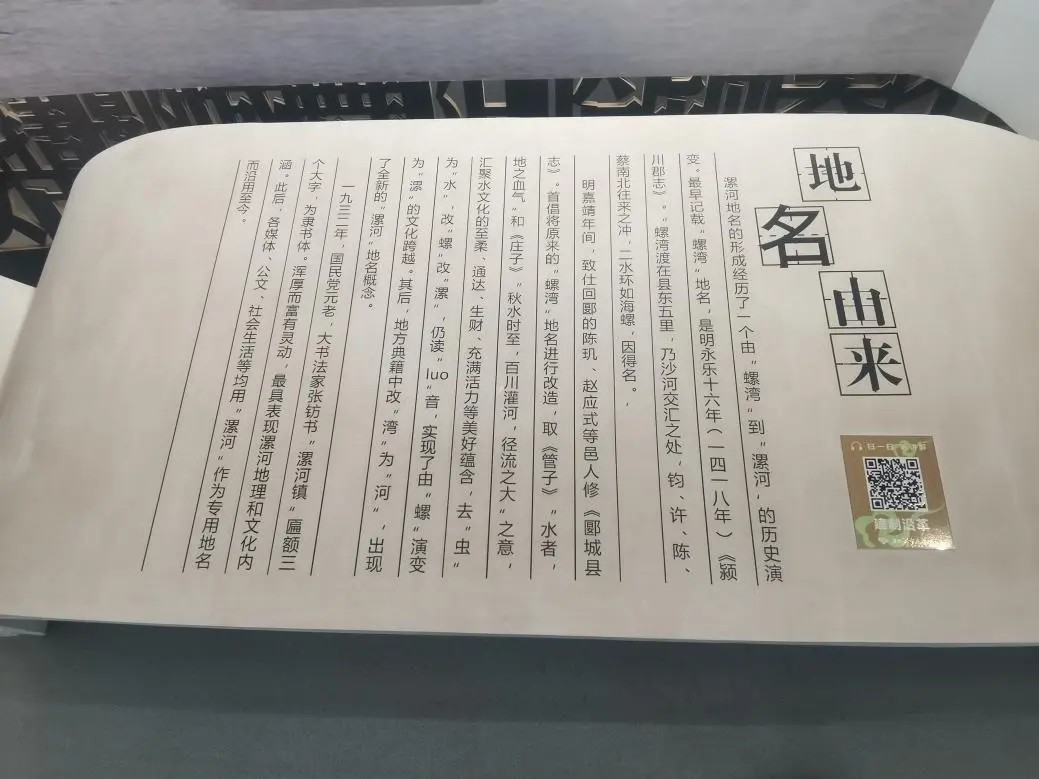 地名由来
漯河地名的形成经历了一个由“螺湾”到“漯河”的历史演
变。最早记载“螺湾”地名，是明永乐十六年（一四一八年）《颍
川郡志》。“螺湾渡在县东五里，乃沙河交汇之处，钧、许、陈、
蔡南北往来之冲，二水环如海螺，因得名。
明嘉靖年间，致仕回郾的陈玑、赵应式等邑人修《郾城县
志》。首倡将原来的“螺湾”地名进行改造，取《管子》“水者，
地之血气”和《庄子》“秋水时至，百川灌河，径流之大”之意，
汇聚水文化的至柔、通达、生财、充满活力等美好蕴含，去“虫”
为“水”，改“螺”改“漯”，仍读“luo”音，实现了由“螺”演变
为“漯”的文化跨越。其后，地方典籍中改“湾”为“河”，出现
了全新的“漯河”地名概念。
一九三二年，国民党元老，大书法家张钫书“漯河镇”匾额三
个大字，为隶书体。浑厚而富有灵动，最具表现漯河地理和文化内
涵。此后，各媒体、公文、社会生活等均用“漯河”作为专用地名
而沿用至今。
建制沿革